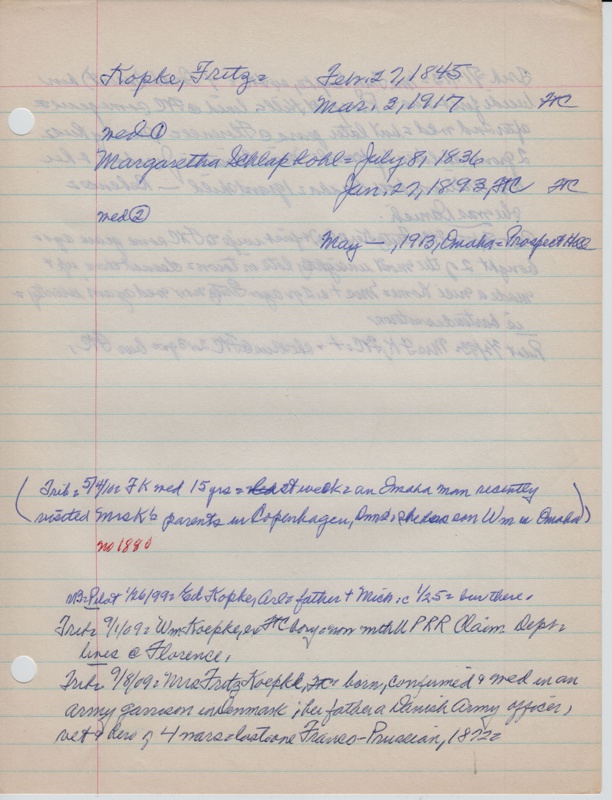 Kopke, Fritz = Feb. 27, 1845
Mar. 3, 1917 FC
med ①
Margaretha Schlapkohl = July 8, 1836
Jan. 27, 1893, FC FC
med ②
May —, 1913, Omaha = Prospect Hill
(Trib = 5/4/02 FK med 15 yrs = last week = an Omaha man recently
visited Mrs K's parents in Copenhagen, Dmk; she has son Wm in Omaha)
no 1880
NB = Pilot 1/26/99 = Ed Kopke, Arl = father + Mich : c 1/25 = bur there.
Trib = 9/1/09 = Wm Koepke, ex FC boy = now with U P RR Claim Dept =
lives @ Florence.
Trib = 9/8/09 = Mrs Fritz Koepke, FC = born, confirmed & med in an
army garrison in Denmark ; her father a Danish Army officer,
vet & hero of 4 wars = last one Franco-Prussian, 1872 =